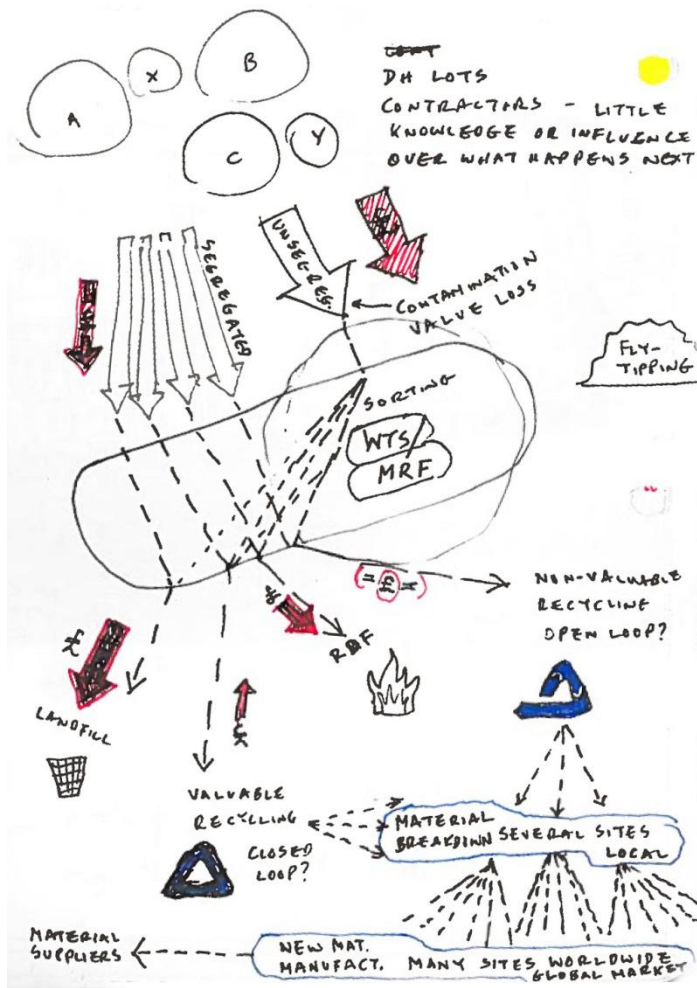 A
X
B
C
Y
DH LOTS
CONTRACTORS - LITTLE
KNOWLEDGE OR INFLUENCE
OVER WHAT HAPPENS NEXT
SEGREGATED
UNSEGREG.
CONTAMINATION
VALUE LOSS
FLY-
TIPPING
SORTING
WTS/
MRF
(=£=)
£
£
£
RDF
LANDFILL
NON-VALUABLE
RECYCLING
OPEN LOOP?
VALUABLE
RECYCLING
CLOSED
LOOP?
MATERIAL
BREAKDOWN SEVERAL SITES
LOCAL
MATERIAL
SUPPLIERS
NEW MAT.
MANUFACT. MANY SITES WORLDWIDE
GLOBAL MARKET